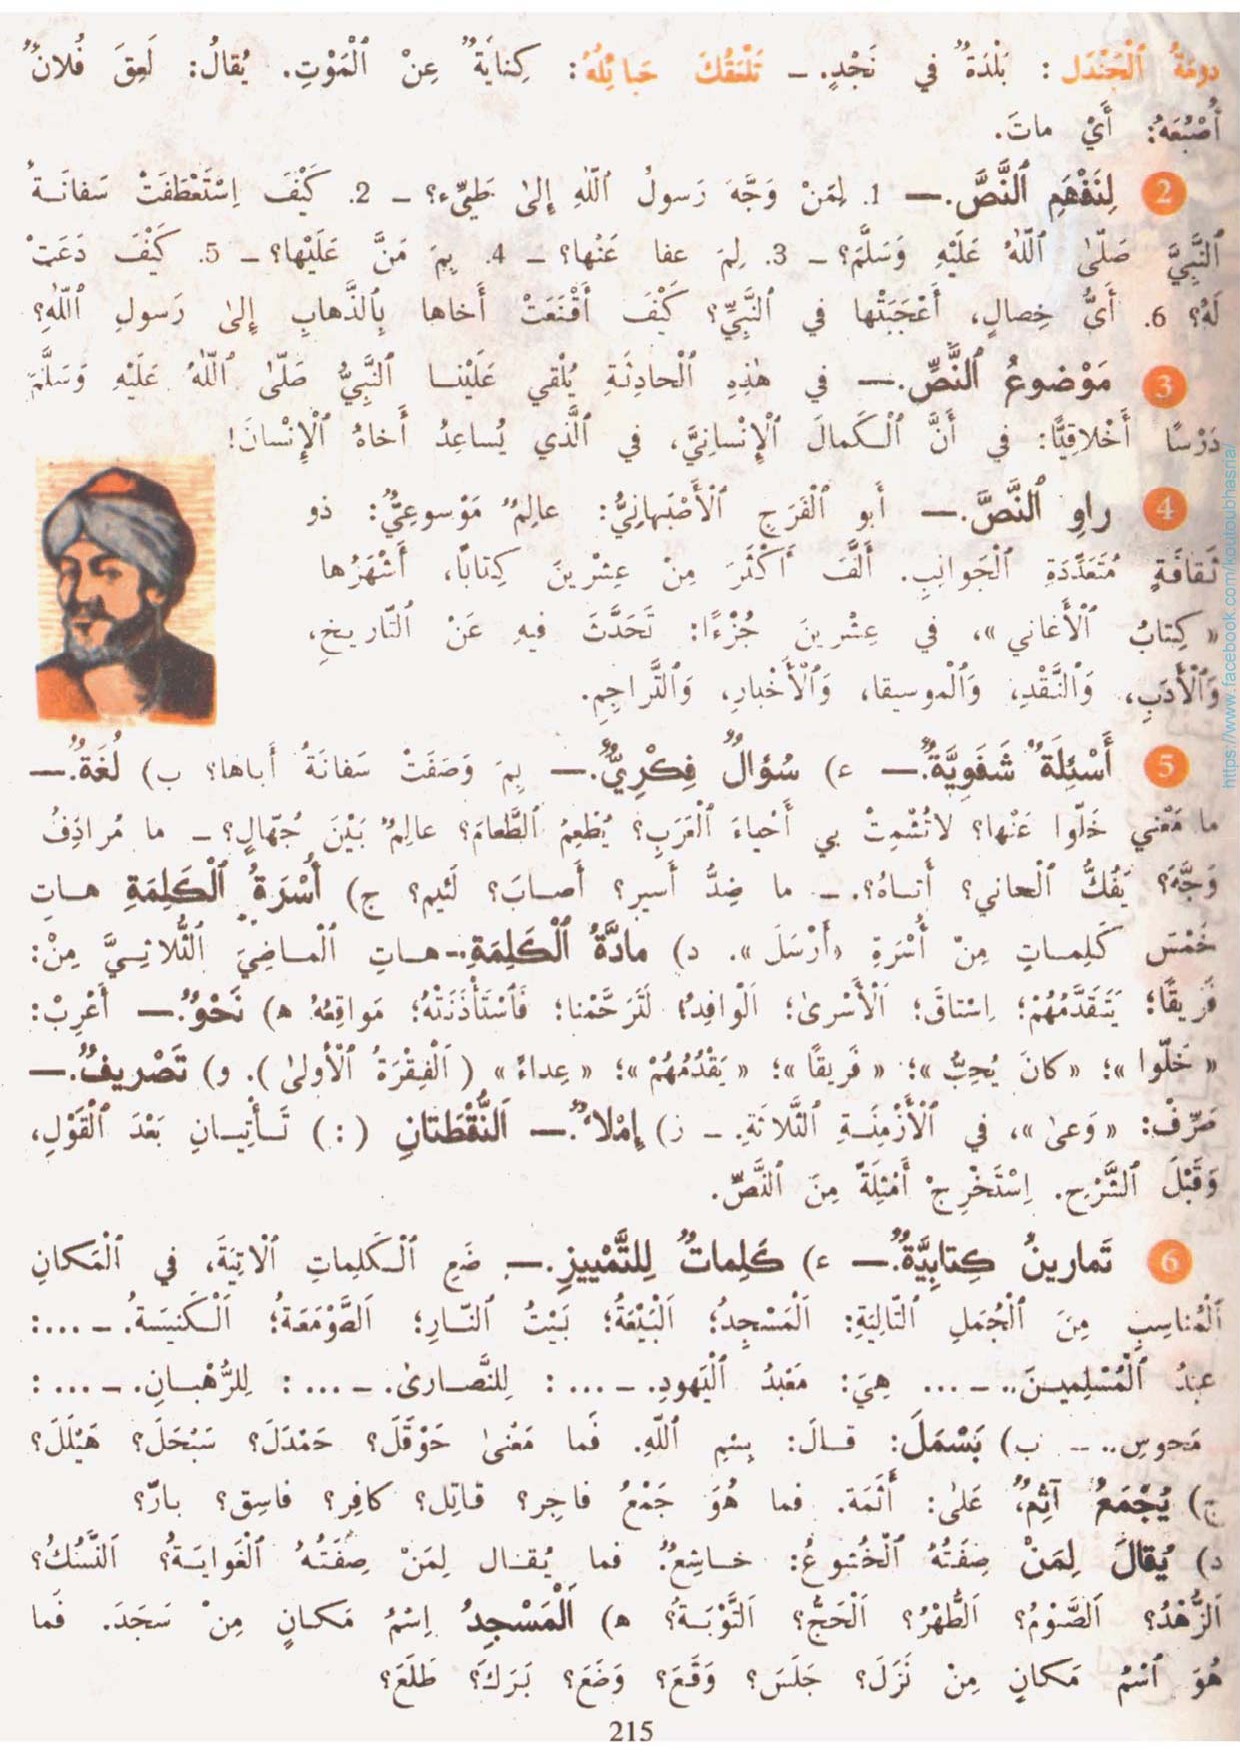 دومَةُ ٱلْجَنْدَل : بَلْدَةٌ في نَجْدٍ. – تَلْعَقُكَ حَبائِلُهُ: كِنايَةٌ عِنْ ٱلْمَوْتِ. يُقالُ: لَعِقَ فُلانٌ
أُصْبُعَهُ: أَيْ ماتَ.
2 لِنَفْهَمِ ٱلنَّصَّ. — 1. لِمَنْ وَجَّهَ رَسولُ ٱللّٰهِ إِلىٰ طَيِّءٍ؟ – 2. كَيْفَ اِسْتَعْطَفَتْ سَفانَةُ
ٱلنَّبِيَّ صَلّىٰ ٱللّٰهُ عَلَيْهِ وَسَلَّمَ؟ – 3. لِمَ عفا عَنْها؟ – 4. بِمَ مَنَّ عَلَيْها؟ – 5. كَيْفَ دَعَتْ
لَهُ؟ 6. أَيُّ خِصالٍ، أَعْجَبَتْها في ٱلنَّبِيِّ؟ كَيْفَ أَقْنَعَتْ أَخاها بِٱلذَّهابِ إِلىٰ رَسولِ ٱللّٰهِ؟
3 مَوْضوعُ ٱلنَّصِّ. — في هٰذِهِ ٱلْحادِثَةِ يُلْقي عَلَيْنا ٱلنَّبِيُّ صَلّىٰ ٱللّٰهُ عَلَيْهِ وَسَلَّمَ
دَرْسًا أَخْلاقِيًّا: في أَنَّ ٱلْكَمالَ ٱلْإِنْسانِيَّ، في ٱلَّذي يُساعِدُ أَخاهُ ٱلْإِنْسانَ!
4 راوِ ٱلنَّصَّ. — أَبو ٱلْفَرَجِ ٱلْأَصْبَهانِيُّ: عالِمٌ مَوْسوعِيٌّ: ذو
ثَقافَةٍ مُتَعَدِّدَةِ ٱلْجَوانِبِ. أَلَّفَ أَكْثَرَ مِنْ عِشْرينَ كِتابًا، أَشْهَرُها
« كِتابُ ٱلْأَغاني »، في عِشْرينَ جُزْءًا: تَحَدَّثَ فيهِ عَنْ ٱلتّاريخِ،
وَٱلْأَدَبِ، وَٱلنَّقْدِ، وَٱلْموسيقا، وَٱلْأَخْبارِ، وَٱلتَّراجِمِ.
5 أَسْئِلَةٌ شَفَوِيَّةٌ. — ء) سُؤالٌ فِكْرِيٌّ. — بِمَ وَصَفَتْ سَفانَةُ أَباها؟ ب) لُغَةٌ. —
ما مَعْني خَلّوا عَنْها؟ لاتُشْمِتْ بي أَحْياءَ ٱلْعَرَبِ؟ يُطْعِمُ ٱلطَّعامَ؟ عالِمٌ بَيْنَ جُهّالٍ؟ – ما مُرادِفُ
وَجَّهَ؟ يَفُكُّ ٱلْعاني؟ أَتاهُ؟. – ما ضِدُّ أَسير؟ أَصابَ؟ لَئيم؟ ج) أُسْرَةُ ٱلْكَلِمَةِ هاتِ
خَمْسَ كَلِماتٍ مِنْ أُسْرَةِ «أَرْسَلَ». د) مادَّةُ ٱلْكَلِمَةِ.- هاتِ ٱلْماضِيَ ٱلثُّلاثِيَّ مِنْ:
فَريقًا؛ يَتَقَدَّمُهُمْ؛ اِسْتاقَ؛ اَلْأَسْرىٰ؛ اَلْوافِدُ؛ لَتَرَحَّمْنا؛ فَٱسْتَأْذَنَتْهُ؛ مَواقِعُهُ ه) نَحْوٌ. — أَعْرِبْ:
« خَلّوا »؛ « كانَ يُحِبُّ »؛ « فَريقًا »؛ « يَقْدُمُهُمْ »؛ « عِداءً » ( اَلْفِقْرَةُ ٱلْأولىٰ ). و) تَصْريفٌ. —
صَرِّفْ: « وَعىٰ »، في ٱلْأَزْمِنَةِ ٱلثَّلاثَةِ. – ز) إِمْلاءٌ. — اَلنُّقْطَتانِ ( : ) تَأْتِيانِ بَعْدَ ٱلْقَوْلِ،
وَقَبْلَ ٱلشَّرْحِ. اِسْتَخْرِجْ أَمْثِلَةً مِنَ ٱلنَّصِّ.
6 تَمارينُ كِتابِيَّةٌ. — ء) كَلِماتٌ لِلتَّمْييزِ. — ضَعِ ٱلْكَلِماتِ ٱلْاتِيَةَ، في ٱلْمَكانِ
ٱلْمُناسِبِ مِنَ ٱلْجُمَلِ ٱلتّالِيَةِ: اَلْمَسْجِدُ؛ اَلْبَيْعَةُ؛ بَيْتُ ٱلنّارِ؛ اَلصَّوْمَعَةُ؛ اَلْكَنيسَةُ. – ...:
عِنْدُ ٱلْمُسْلِمينَ.. – ... هِيَ: مَعْبَدُ ٱلْيَهودِ. – ... : لِلنَّصارىٰ. – ... : لِلرُّهْبانِ. – ... :
مَجوسِ.. – ب) بَسْمَلَ: قالَ: بِسْمِ ٱللّٰهِ. فَما مَعْنىٰ حَوْقَلَ؟ حَمْدَلَ؟ سَبْحَلَ؟ هَيْلَلَ؟
ج) يُجْمَعُ آثِمٌ، عَلىٰ: أَثَمَة. فما هُوَ جَمْعُ فاجِر؟ قاتِل؟ كافِر؟ فاسِق؟ بارّ؟
د) يُقالَ لِمَنْ صِفَتُهُ ٱلْخُشوعُ: خاشِعٌ. فما يُقال لِمَنْ صِفَتُهُ ٱلْغَوايَةُ؟ اَلنُّسُكُ؟
اَلزُّهْدُ؟ اَلصَّوْمُ؟ اَلطُّهْرُ؟ اَلْحَجُّ؟ اَلتَّوْبَةُ؟ ه) اَلْمَسْجِدُ اِسْمُ مَكانٍ مِنْ سَجَدَ. فَما
هُوَ ٱسْمُ مَكانٍ مِنْ نَزَلَ؟ جَلَسَ؟ وَقَعَ؟ وَضَعَ؟ بَرَكَ؟ طَلَعَ؟
215
https://www.facebook.com/koutoubhasria/